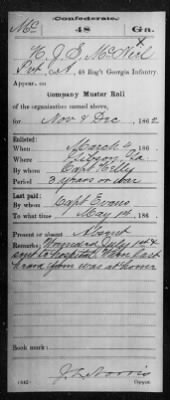 Confederate.
Mc 48 Ga.
H. J. S. McNeil
Pvt, Co. A, 48 Reg't Georgia Infantry.
Appears on
Company Muster Roll
of the organization named above,
for Nov & Dec, 1862
Enlisted:
When March 4, 186
Where Gibson Ga
By whom Capt Kelly
Period 3 years or war
Last paid:
By whom Capt Evans
To what time May 1st, 186
Present or absent Absent
Remarks: Wounded July 1st &
sent to hospital. When last
heard from was at home
Book mark:
J. L. Norris
(642) Copyist.